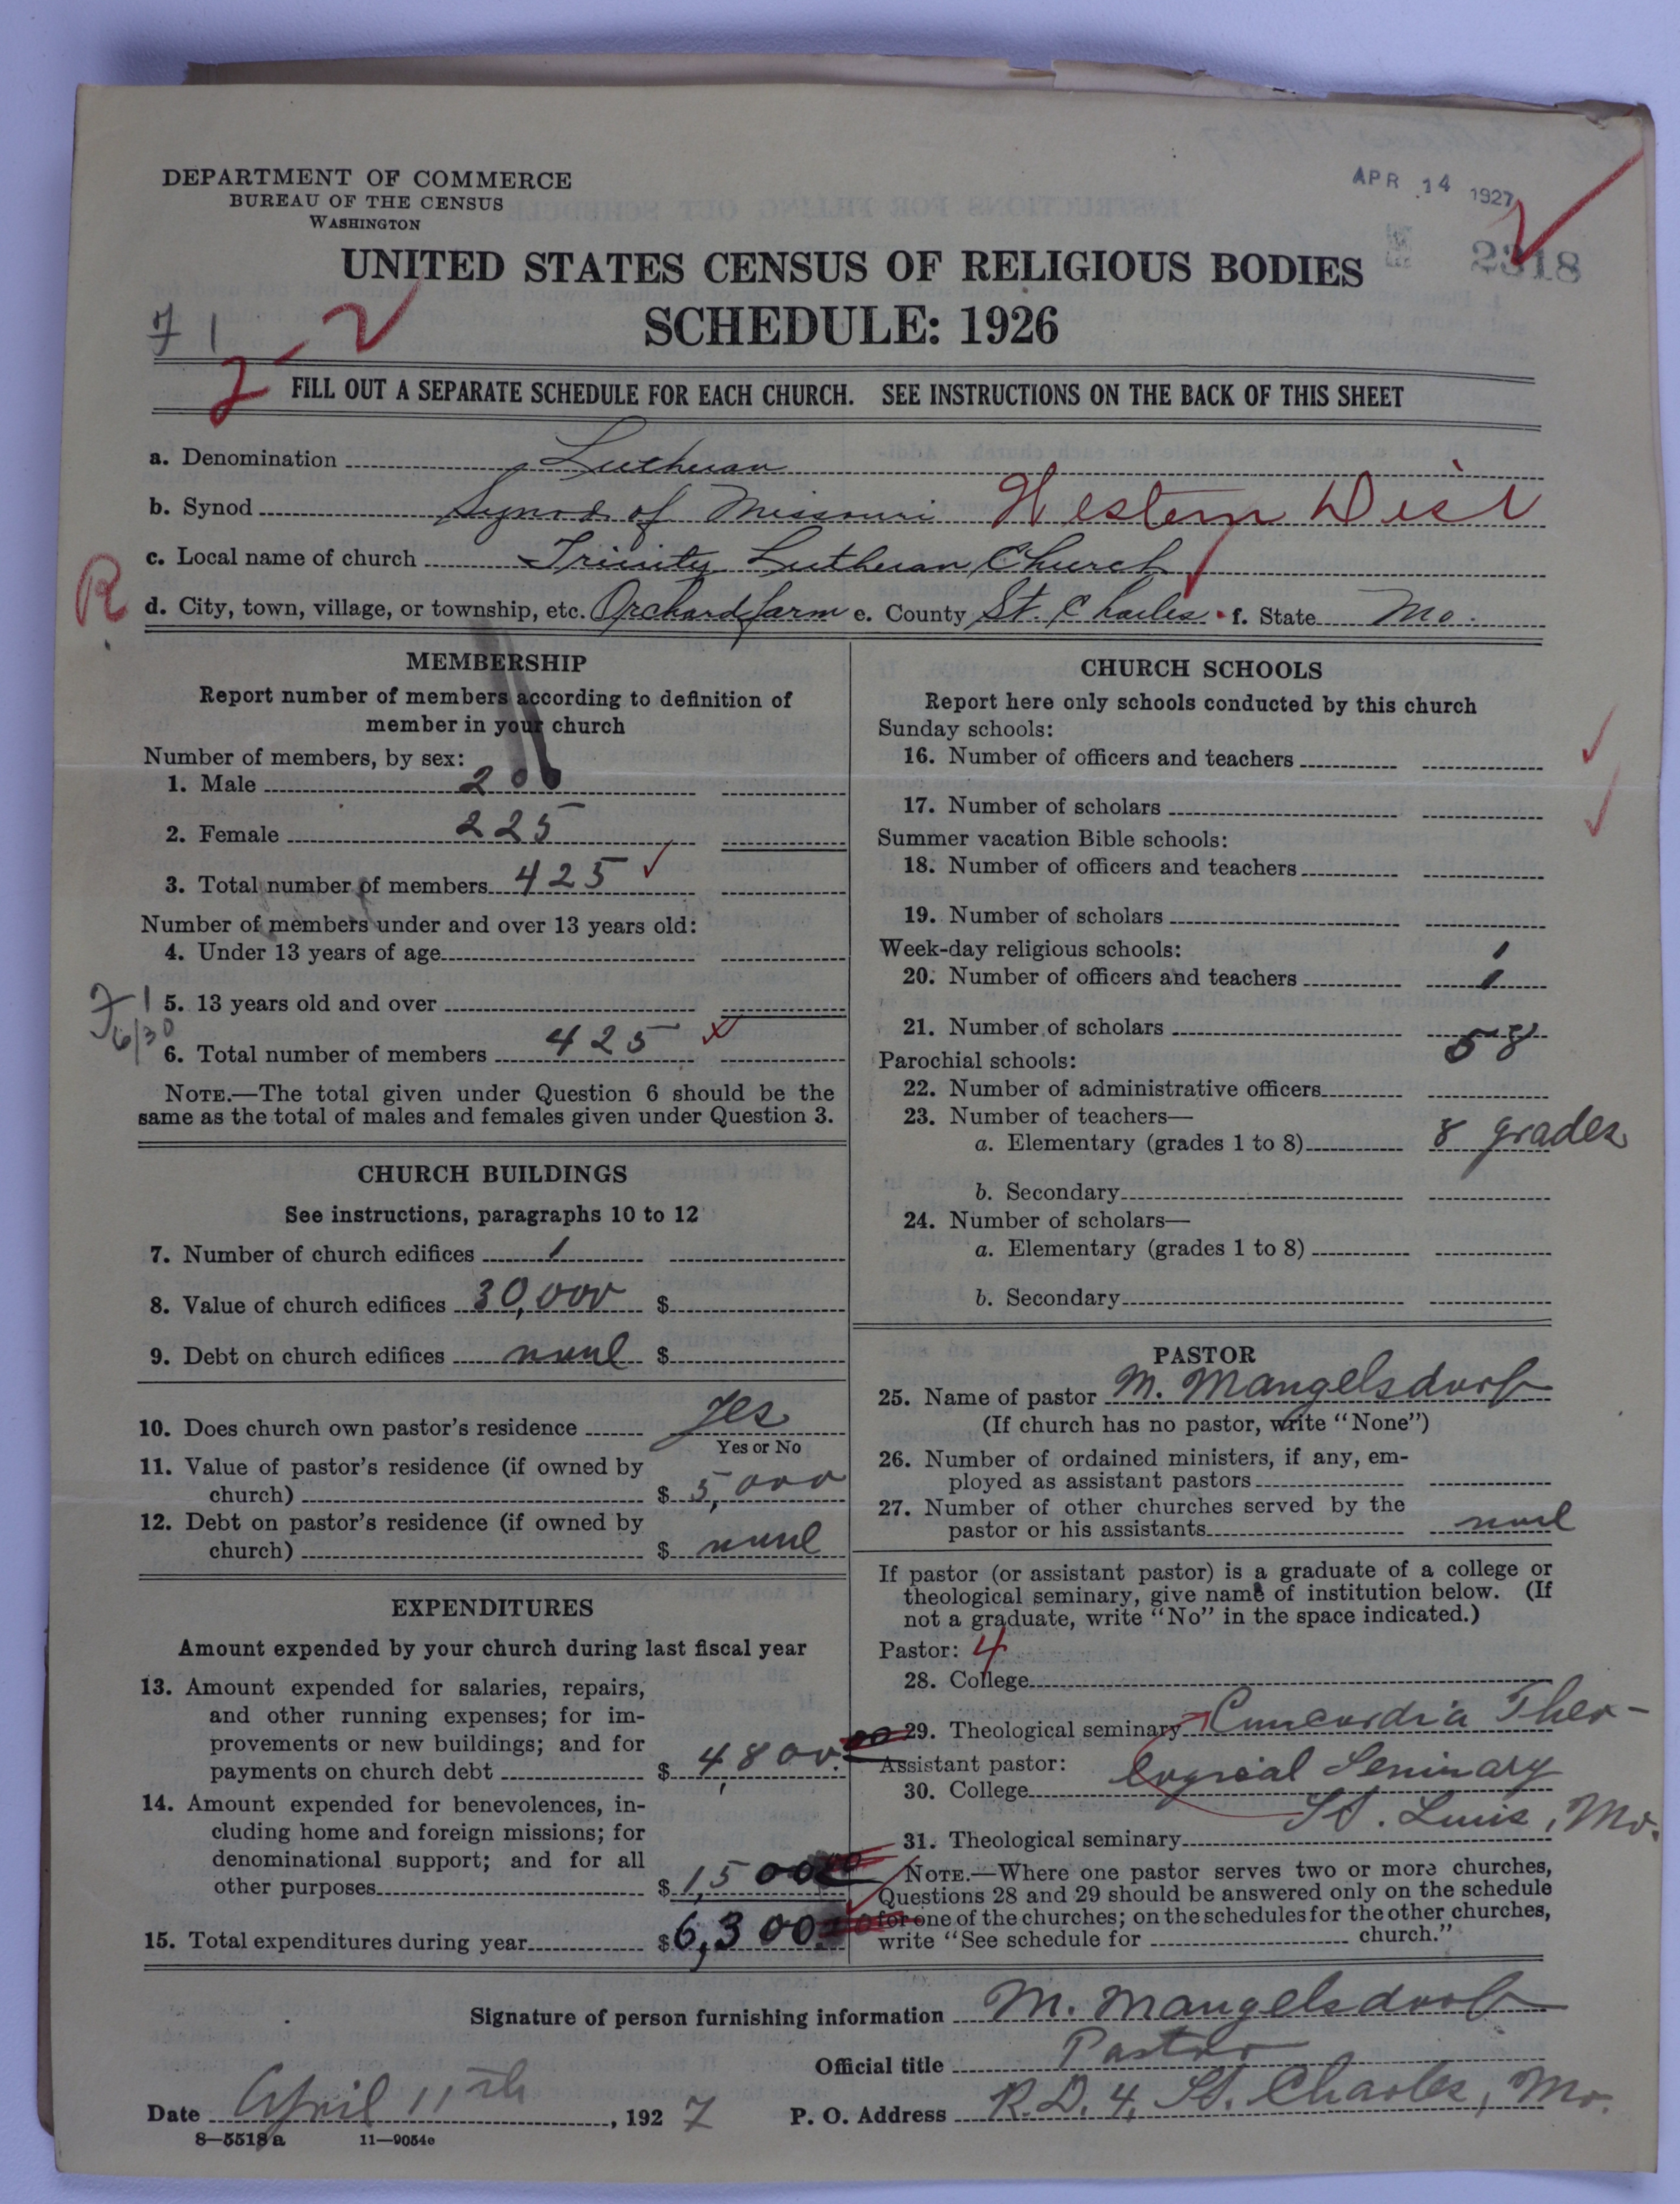 DEPARTMENT OF COMMERCE
BUREAU OF THE CENSUS
WASHINGTON
APR 14 1927
2318
UNITED STATES CENSUS OF RELIGIOUS BODIES
SCHEDULE: 1926
FILL OUT A SEPARATE SCHEDULE FOR EACH CHURCH. SEE INSTRUCTIONS ON THE BACK OF THIS SHEET
a. Denomination Lutheran
b. Synod Synod of Missouri Western Dist
c. Local name of church Trinity Lutheran Church
R
d. City, town, village, or township, etc. Orchard farm e. County St. Charles f. State Mo.
MEMBERSHIP
Report number of members according to definition of
member in your church
Number of members, by sex:
1. Male 200
2. Female 225
3. Total number of members 425
Number of members under and over 13 years old:
4. Under 13 years of age
5. 13 years old and over
6/30
6. Total number of members 425
NOTE.—The total given under Question 6 should be the
same as the total of males and females given under Question 3.
CHURCH BUILDINGS
See instructions, paragraphs 10 to 12
7. Number of church edifices 1
8. Value of church edifices 30,000 $
9. Debt on church edifices none $
10. Does church own pastor's residence Yes
Yes or No
11. Value of pastor's residence (if owned by
church) $ 5,000
12. Debt on pastor's residence (if owned by
church) $ none
EXPENDITURES
Amount expended by your church during last fiscal year
13. Amount expended for salaries, repairs,
and other running expenses; for im-
provements or new buildings; and for
payments on church debt $ 4,800.00
14. Amount expended for benevolences, in-
cluding home and foreign missions; for
denominational support; and for all
other purposes $ 1,500
15. Total expenditures during year $ 6,300
CHURCH SCHOOLS
Report here only schools conducted by this church
Sunday schools:
16. Number of officers and teachers
17. Number of scholars
Summer vacation Bible schools:
18. Number of officers and teachers
19. Number of scholars
Week-day religious schools: 1
20. Number of officers and teachers 1
21. Number of scholars 58
Parochial schools:
22. Number of administrative officers
23. Number of teachers—
a. Elementary (grades 1 to 8) 8 grades
b. Secondary
24. Number of scholars—
a. Elementary (grades 1 to 8)
b. Secondary
PASTOR
25. Name of pastor M. Mangelsdorf
(If church has no pastor, write "None")
26. Number of ordained ministers, if any, em-
ployed as assistant pastors
27. Number of other churches served by the
pastor or his assistants none
If pastor (or assistant pastor) is a graduate of a college or
theological seminary, give name of institution below. (If
not a graduate, write "No" in the space indicated.)
Pastor: 4
28. College
29. Theological seminary Concordia Theo-
Assistant pastor: logical Seminary
30. College
St. Louis, Mo.
31. Theological seminary
NOTE.—Where one pastor serves two or more churches,
Questions 28 and 29 should be answered only on the schedule
for one of the churches; on the schedules for the other churches,
write "See schedule for church."
Signature of person furnishing information M. Mangelsdorf
Official title Pastor
Date April 11th, 1927 P. O. Address R.D. 4, St. Charles, Mo.
8—5518a 11—9054e